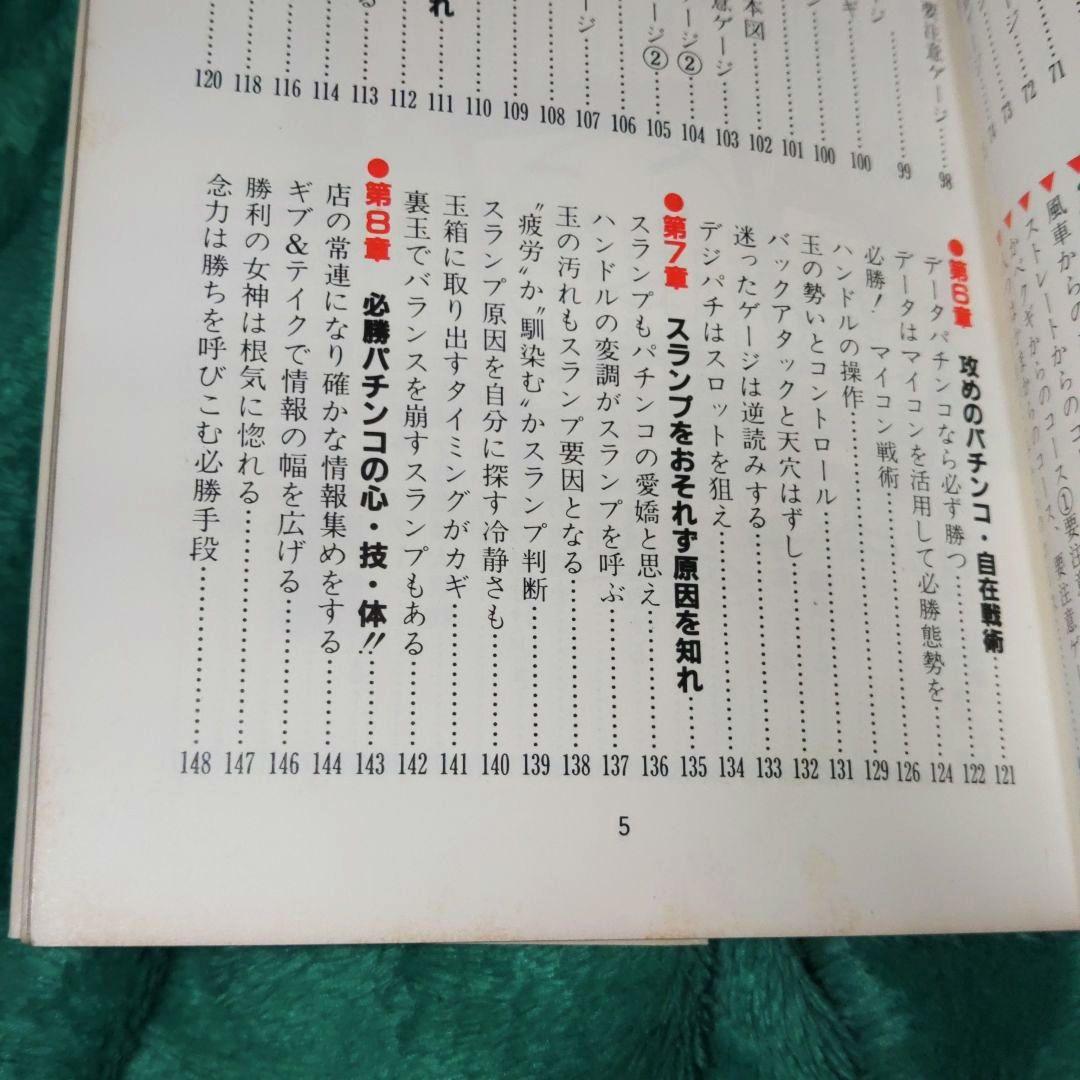 風車からの
ストレートからのコ
●第6章 攻めのパチンコ・自在戦術……121
データパチンコなら必ず勝つ……122
データはマイコンを活用して必勝態勢を……124
必勝! マイコン戦術……126
ハンドルの操作……129
玉の勢いとコントロール……131
バックアタックと天穴はずし……132
迷ったゲージは逆読みする……133
デジパチはスロットを狙え……134
●第7章 スランプをおそれず原因を知れ……135
スランプもパチンコの愛嬌と思え……136
ハンドルの変調がスランプを呼ぶ……137
玉の汚れもスランプ要因となる……138
〝疲労〟か〝馴染む〟かスランプ判断……139
スランプ原因を自分に探す冷静さも……140
玉箱に取り出すタイミングがカギ……141
裏玉でバランスを崩すスランプもある……142
●第8章 必勝パチンコの心・技・体!!……143
店の常連になり確かな情報集めをする……144
ギブ&テイクで情報の幅を広げる……146
勝利の女神は根気に惚れる……147
念力は勝ちを呼びこむ必勝手段……148
71
72
73
要注意ゲージ……98
ージ……99
100
100
101
本図……102
意ゲージ……103
ージ②……104
ージ②……105
106
ージ……107
108
109
110
れ……111
112
113
114
116
118
120
5